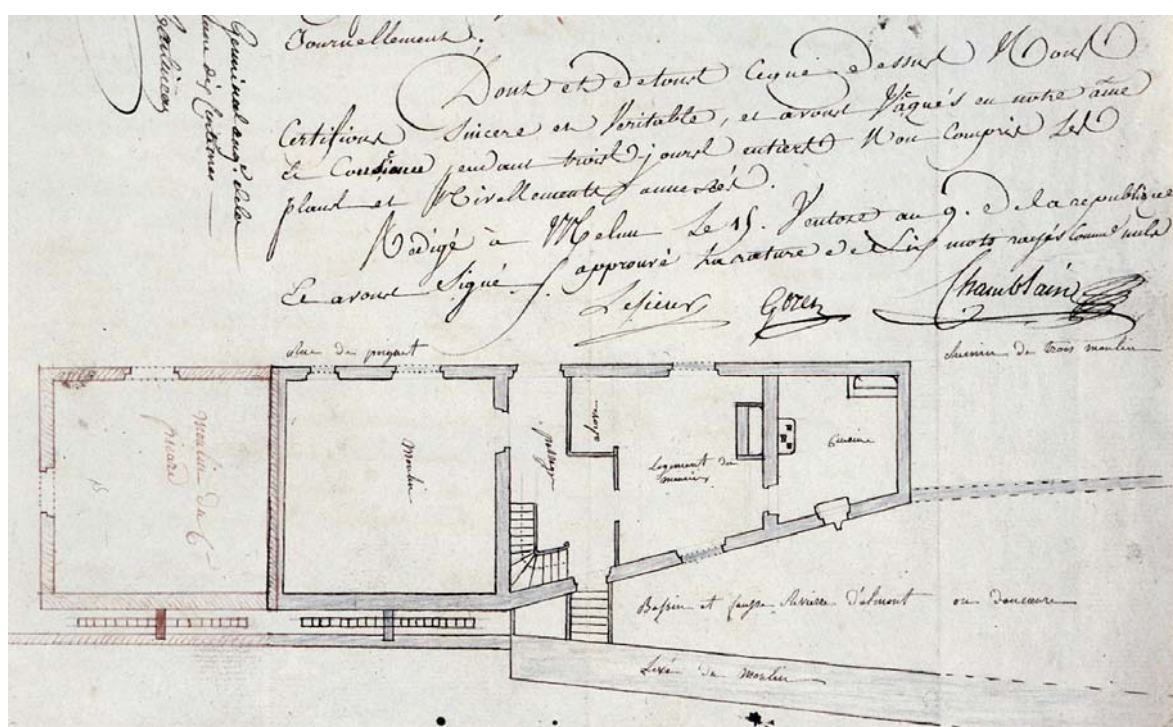 Journellement.
Dont et de tout ce qui dessus Nous
Certifions Sincere et Veritable, et avons Vaqués en notre ame
et Consience pendant trois jours entiers Non Compris Les
plans et Nivellements annexés.
Redigé à Melun Le 15. Ventose an 9. de la republique
Et avons Signé. approuvé La rature de Six mots rayés Comme nuls
Lesieur Chamblain
Germinal an 9.
dix Centimes
Rue de poignet
chemin de trois moulin
moulin du Cen
picard
Moulin
passage
alcove
Logement du
meunier
Cuisine
Bassin et fausse Riviere d'almont ou
Levé du Moulin